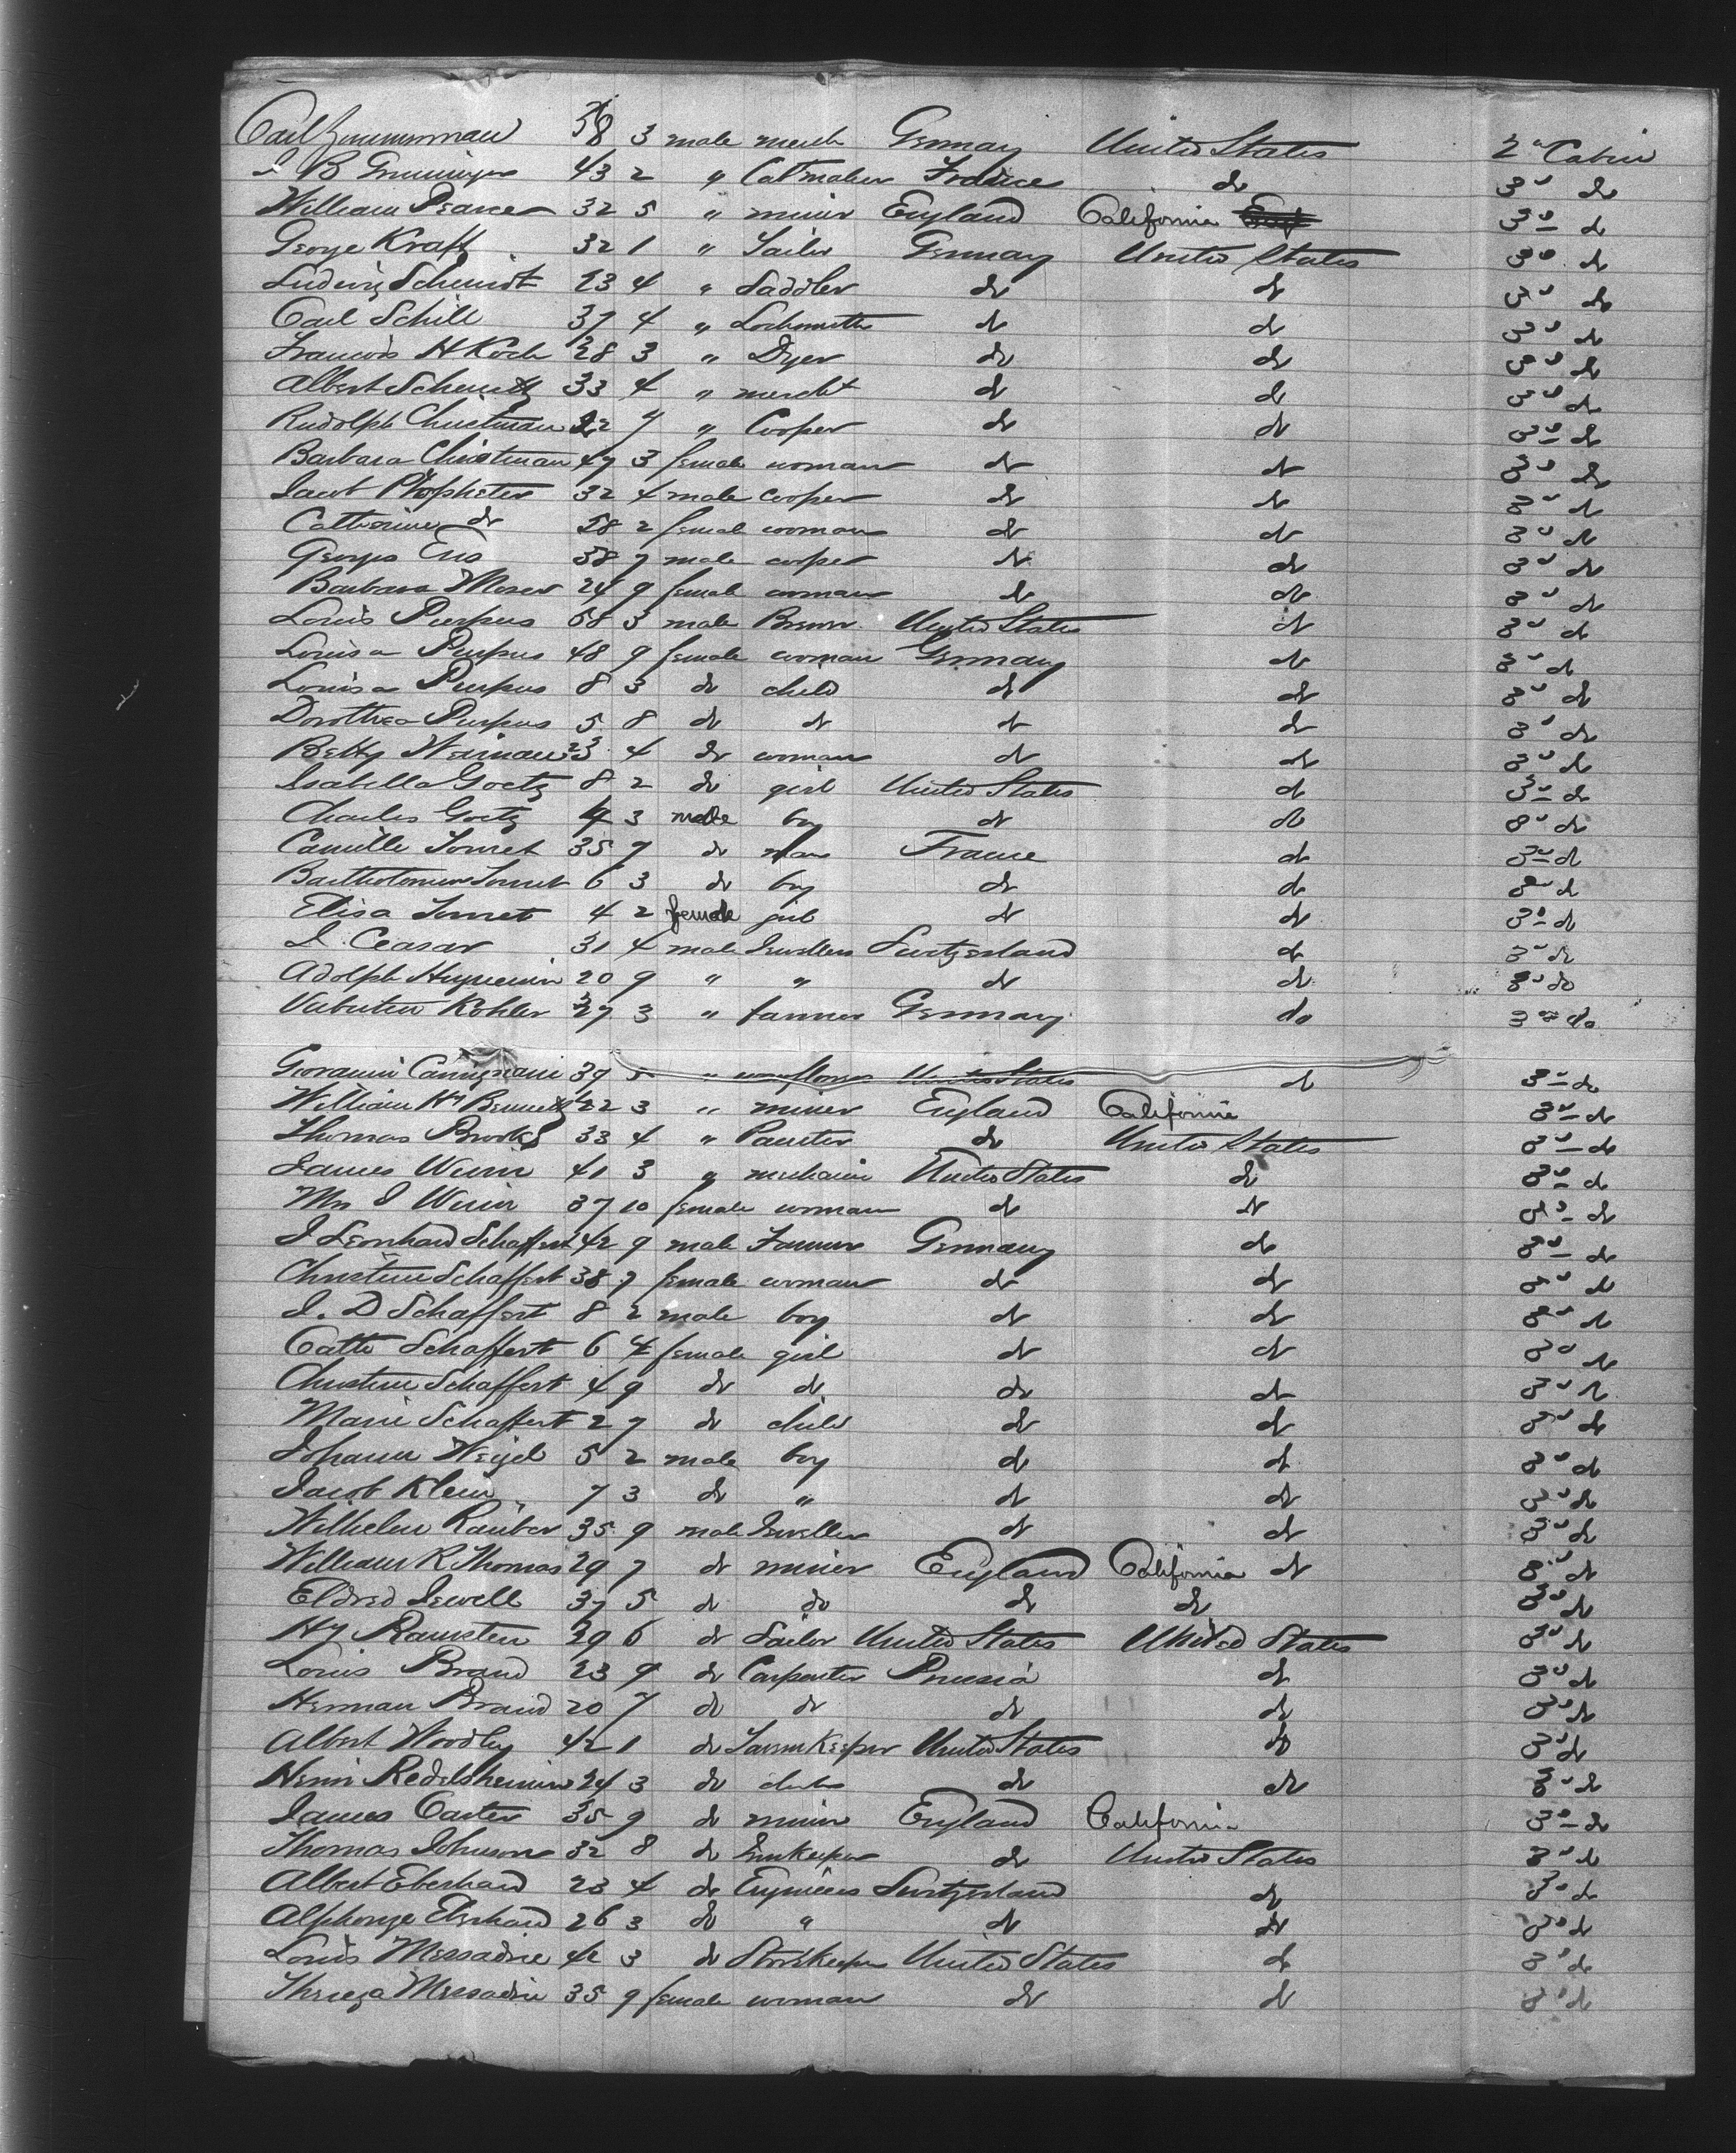 Carl Zimmerman 38 3 male merch Germany United States 2d Cabin
J B Greuninger 43 2 " France do 3d do
William Pearce 32 5 " miner England California 3d do
George Kraft 32 1 " Tailor Germany United States 3d do
Ludwig Schmidt 23 4 " Saddler do do 3d do
Carl Schill 37 4 " Locksmith do do 3d do
Francois H Koch 28 3 " Dyer do do 3d do
Albert Schmitt 33 4 " mercht do do 3d do
Rudolph Christman 22 7 " Cooper do do 3d do
Barbara Christman 47 3 female woman do do 3d do
Jacob Propheter 32 4 male cooper do do 3d do
Catherine do 28 2 female woman do do 3d do
George Ens 38 7 male cooper do do 3d do
Barbara Moser 24 9 female woman do do 3d do
Louis Purpus 58 3 male Brewer United States do 3d do
Louisa Purpus 48 9 female woman Germany do 3d do
Louisa Purpus 8 3 do child do do 3d do
Dorothea Purpus 5 8 do do do do 3d do
Betty 23 4 do woman do do 3d do
Isabella Goetz 8 2 do girl United States do 3d do
Charles Goetz 4 3 male boy do do 3d do
Camille Tomet 35 7 do man France do 3d do
Bartholomew Tomet 6 3 do boy do do 3d do
Elisa Tomet 4 2 female girl do do 3d do
J. Ceasar 31 4 male Jewellers Switzerland do 3d do
Adolph Huguenin 20 9 " " do do 3d do
Valentin Kohler 27 3 " farmer Germany do 3d do
Giovanni Camignani 39 5 " United States do 3d do
William Hy Bennett 22 3 " miner England California 3d do
Thomas Brooks 33 4 " Painter do United States 3d do
James Weir 41 3 " mechanic United States do 3d do
Mrs J Weir 37 10 female woman do do 3d do
J Leonhard Schaffert 42 9 male Farmer Germany do 3d do
Christine Schaffert 38 7 female woman do do 3d do
J. D Schaffert 8 2 male boy do do 3d do
Cath Schaffert 6 4 female girl do do 3d do
Christine Schaffert 4 9 do do do do 3d do
Marie Schaffert 2 7 do child do do 3d do
Johann Weigel 5 2 male boy do do 3d do
Jacob Klein 7 3 do " do do 3d do
Wilhelm Rauber 35 9 male Jeweller do do 3d do
William R Thomas 29 7 do miner England California do 3d do
Eldred Jewell 37 5 do do do do 3d do
Hy Ramsten 29 6 do Sailor United States United States 3d do
Louis Brand 23 9 do Carpenter Prussia do 3d do
Herman Brand 20 7 do do do do 3d do
Albert Woodley 42 1 do Tavern Keeper United States do 3d do
Henri Redelsheimer 24 3 do clerk do do 3d do
James Carter 35 9 do miner England California 3d do
Thomas Johnson 32 8 do Innkeeper do United States 3d do
Albert Eberhard 23 4 do Engineers Switzerland do 3d do
Alphonze Eberhard 26 3 do " do do 3d do
Louis Messadrie 42 3 do Storekeeper United States do 3d do
Thereza Messadrie 35 9 female woman do do 3d do